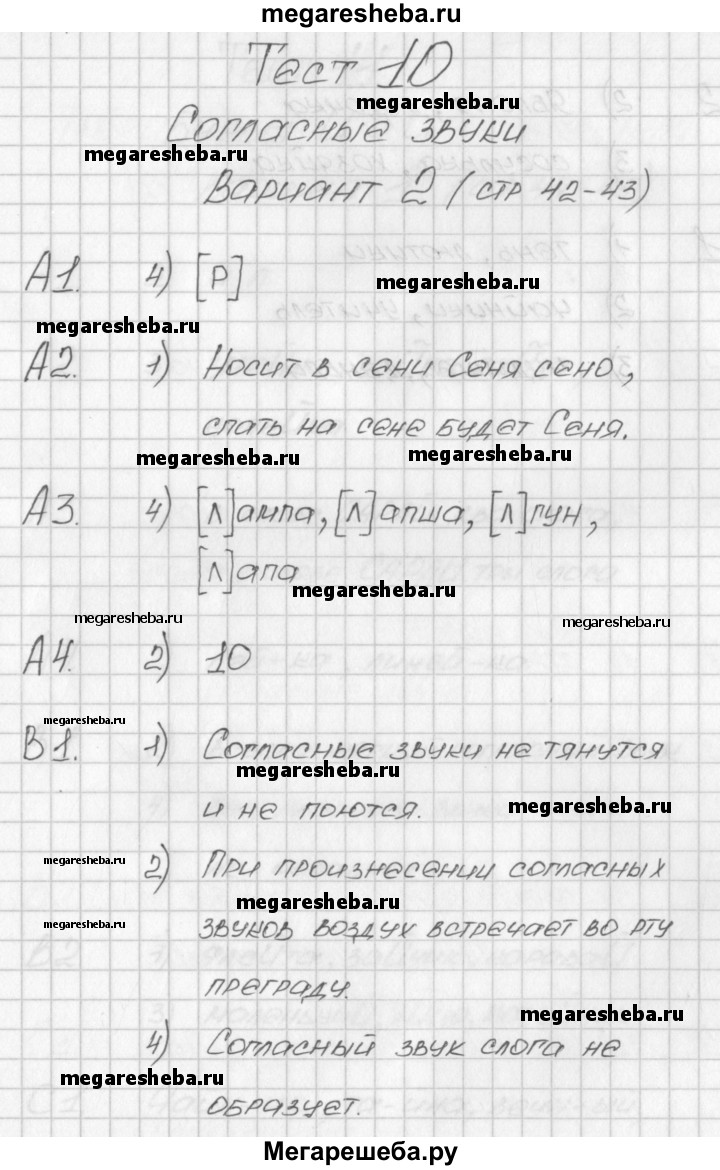 megaresheba.ru
Тест 10
megaresheba.ru
Согласные звуки
megaresheba.ru
Вариант 2 (стр 42-43)
А1. 4) [р]
megaresheba.ru
megaresheba.ru
А2. 1) Носит в сени Сеня сено,
спать на сене будет Сеня.
megaresheba.ru megaresheba.ru
А3. 4) [л]ампа, [л]апша, [л]гун,
[л]апа
megaresheba.ru
megaresheba.ru megaresheba.ru
А4. 2) 10
megaresheba.ru
В1. 1) Согласные звуки не тянутся
megaresheba.ru
и не поются. megaresheba.ru
megaresheba.ru 2) При произнесении согласных
megaresheba.ru
megaresheba.ru звуков воздух встречает во рту
преграду.
megaresheba.ru
4) Согласный звук слога не
megaresheba.ru
образует.
Мегарешеба.ру